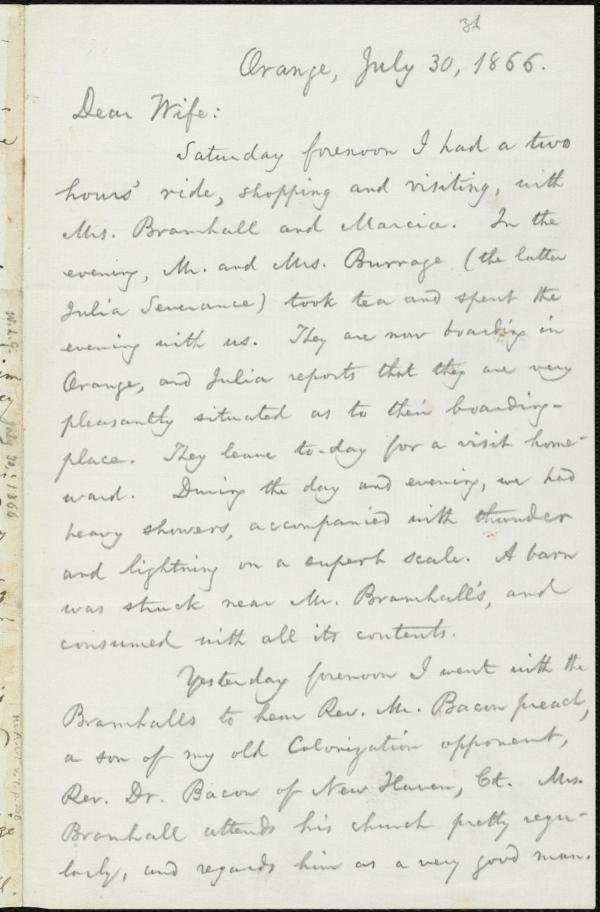 Orange, July 30, 1866.
Dear Wife:
Saturday forenoon I had a two
hours' ride, shopping and visiting, with
Mrs. Bramhall and Marcia. In the
evening, Mr. and Mrs. Burrage (the latter
Julia Severance) took tea and spent the
evening with us. They are now boarding in
Orange, and Julia reports that they are very
pleasantly situated as to their boarding-
place. They leave to-day for a visit home-
ward. During the day and evening, we had
heavy showers, accompanied with thunder
and lightning on a superb scale. A barn
was struck near Mr. Bramhall's, and
consumed with all its contents.
Yesterday forenoon I went with the
Bramhalls to hear Rev. Mr. Bacon preach,
a son of my old Colonization opponent,
Rev. Dr. Bacon of New Haven, Ct. Mrs.
Bramhall attends his church pretty regu-
larly, and regards him as a very good man.
W.L.G.
July 30, 1866